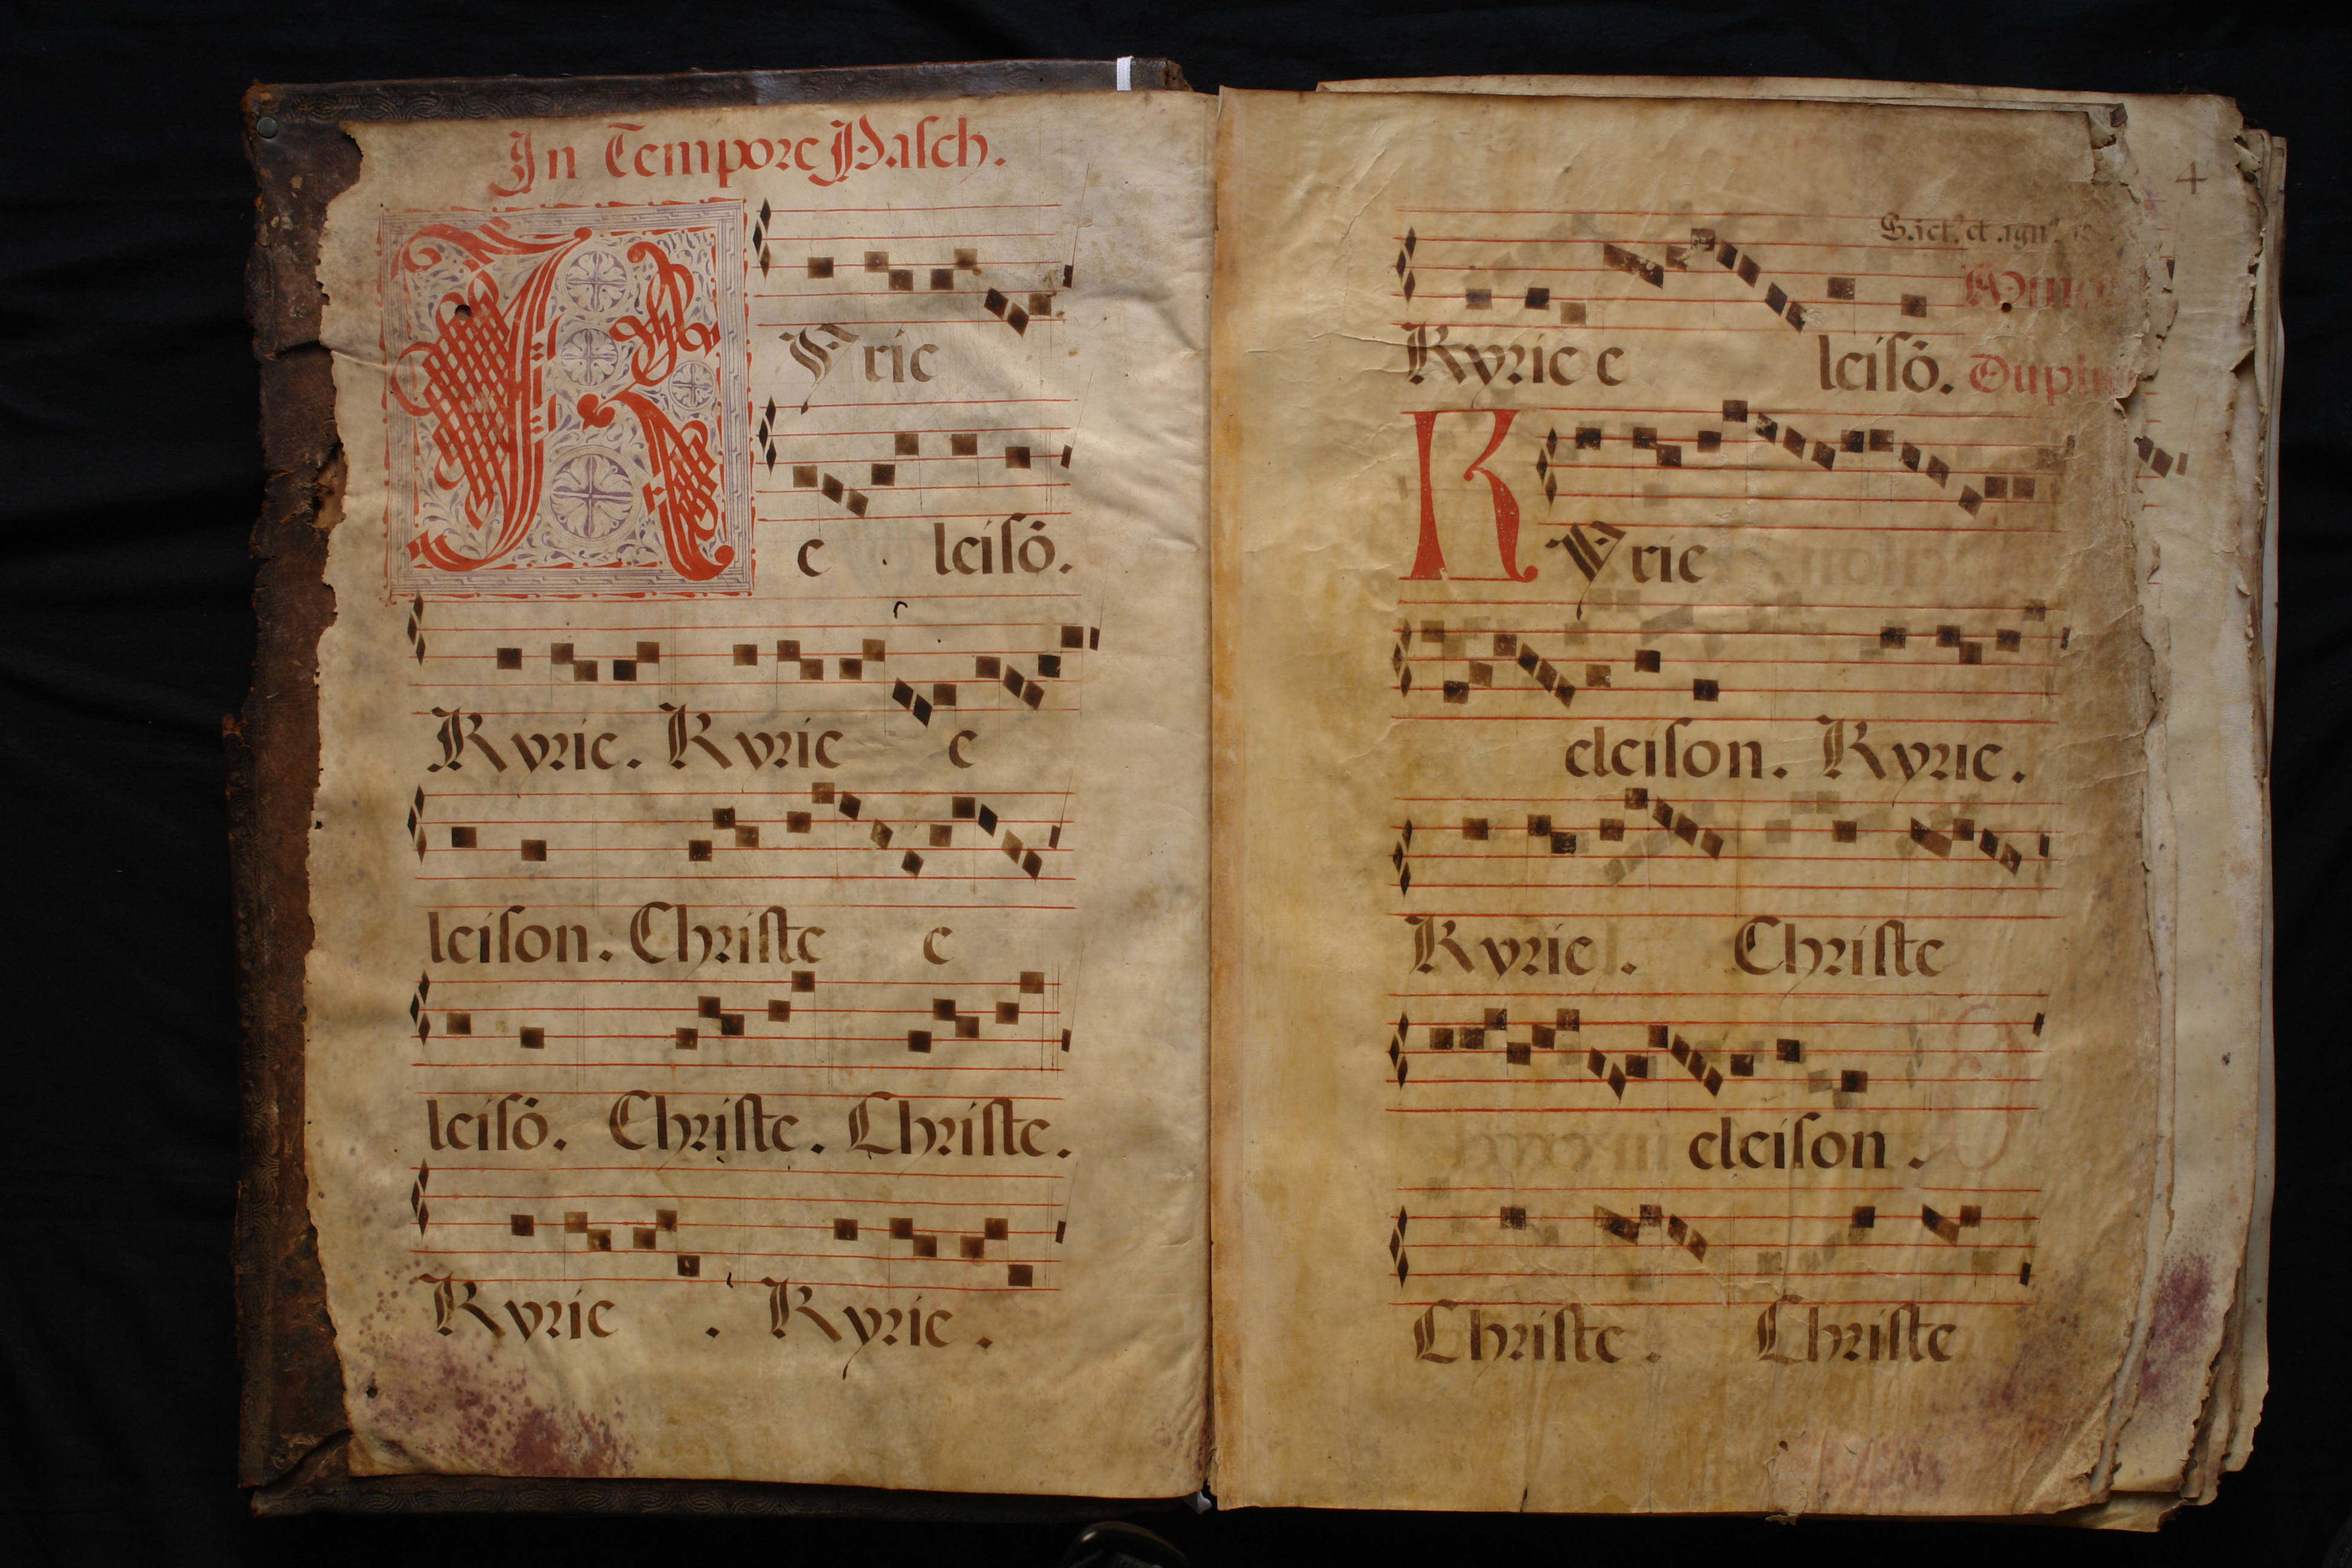 In Tempore Pasch.
KYrie
e leisõ.
Kyrie. Kyrie e
leison. Christe e
leisõ. Christe. Christe.
Kyrie . Kyrie .
4
Kyrie e leisõ.
KYrie
eleison. Kyrie.
Kyrie . Christe
eleison .
Christe . Christe